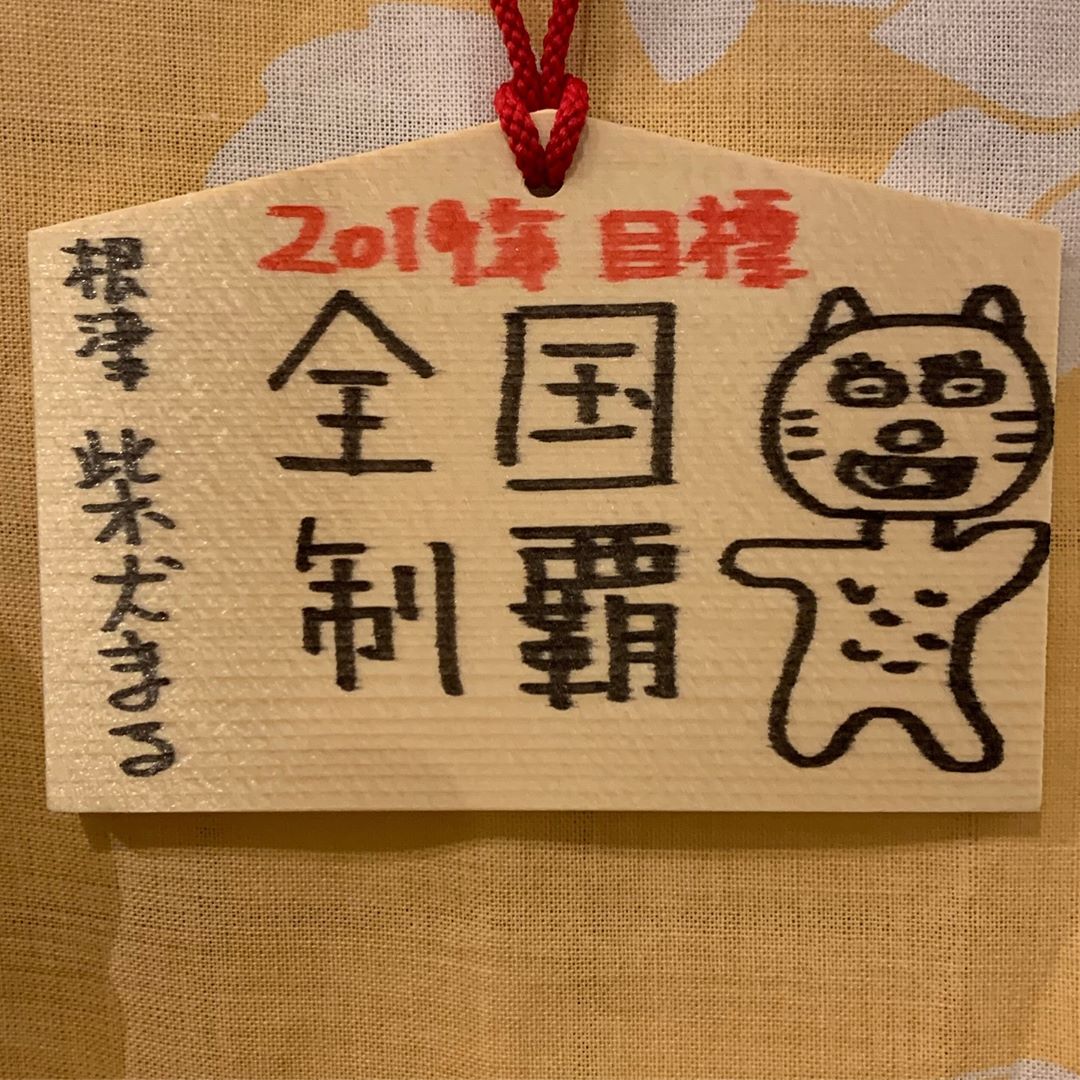 2019年 目標
全国
制覇
根津 柴犬まる